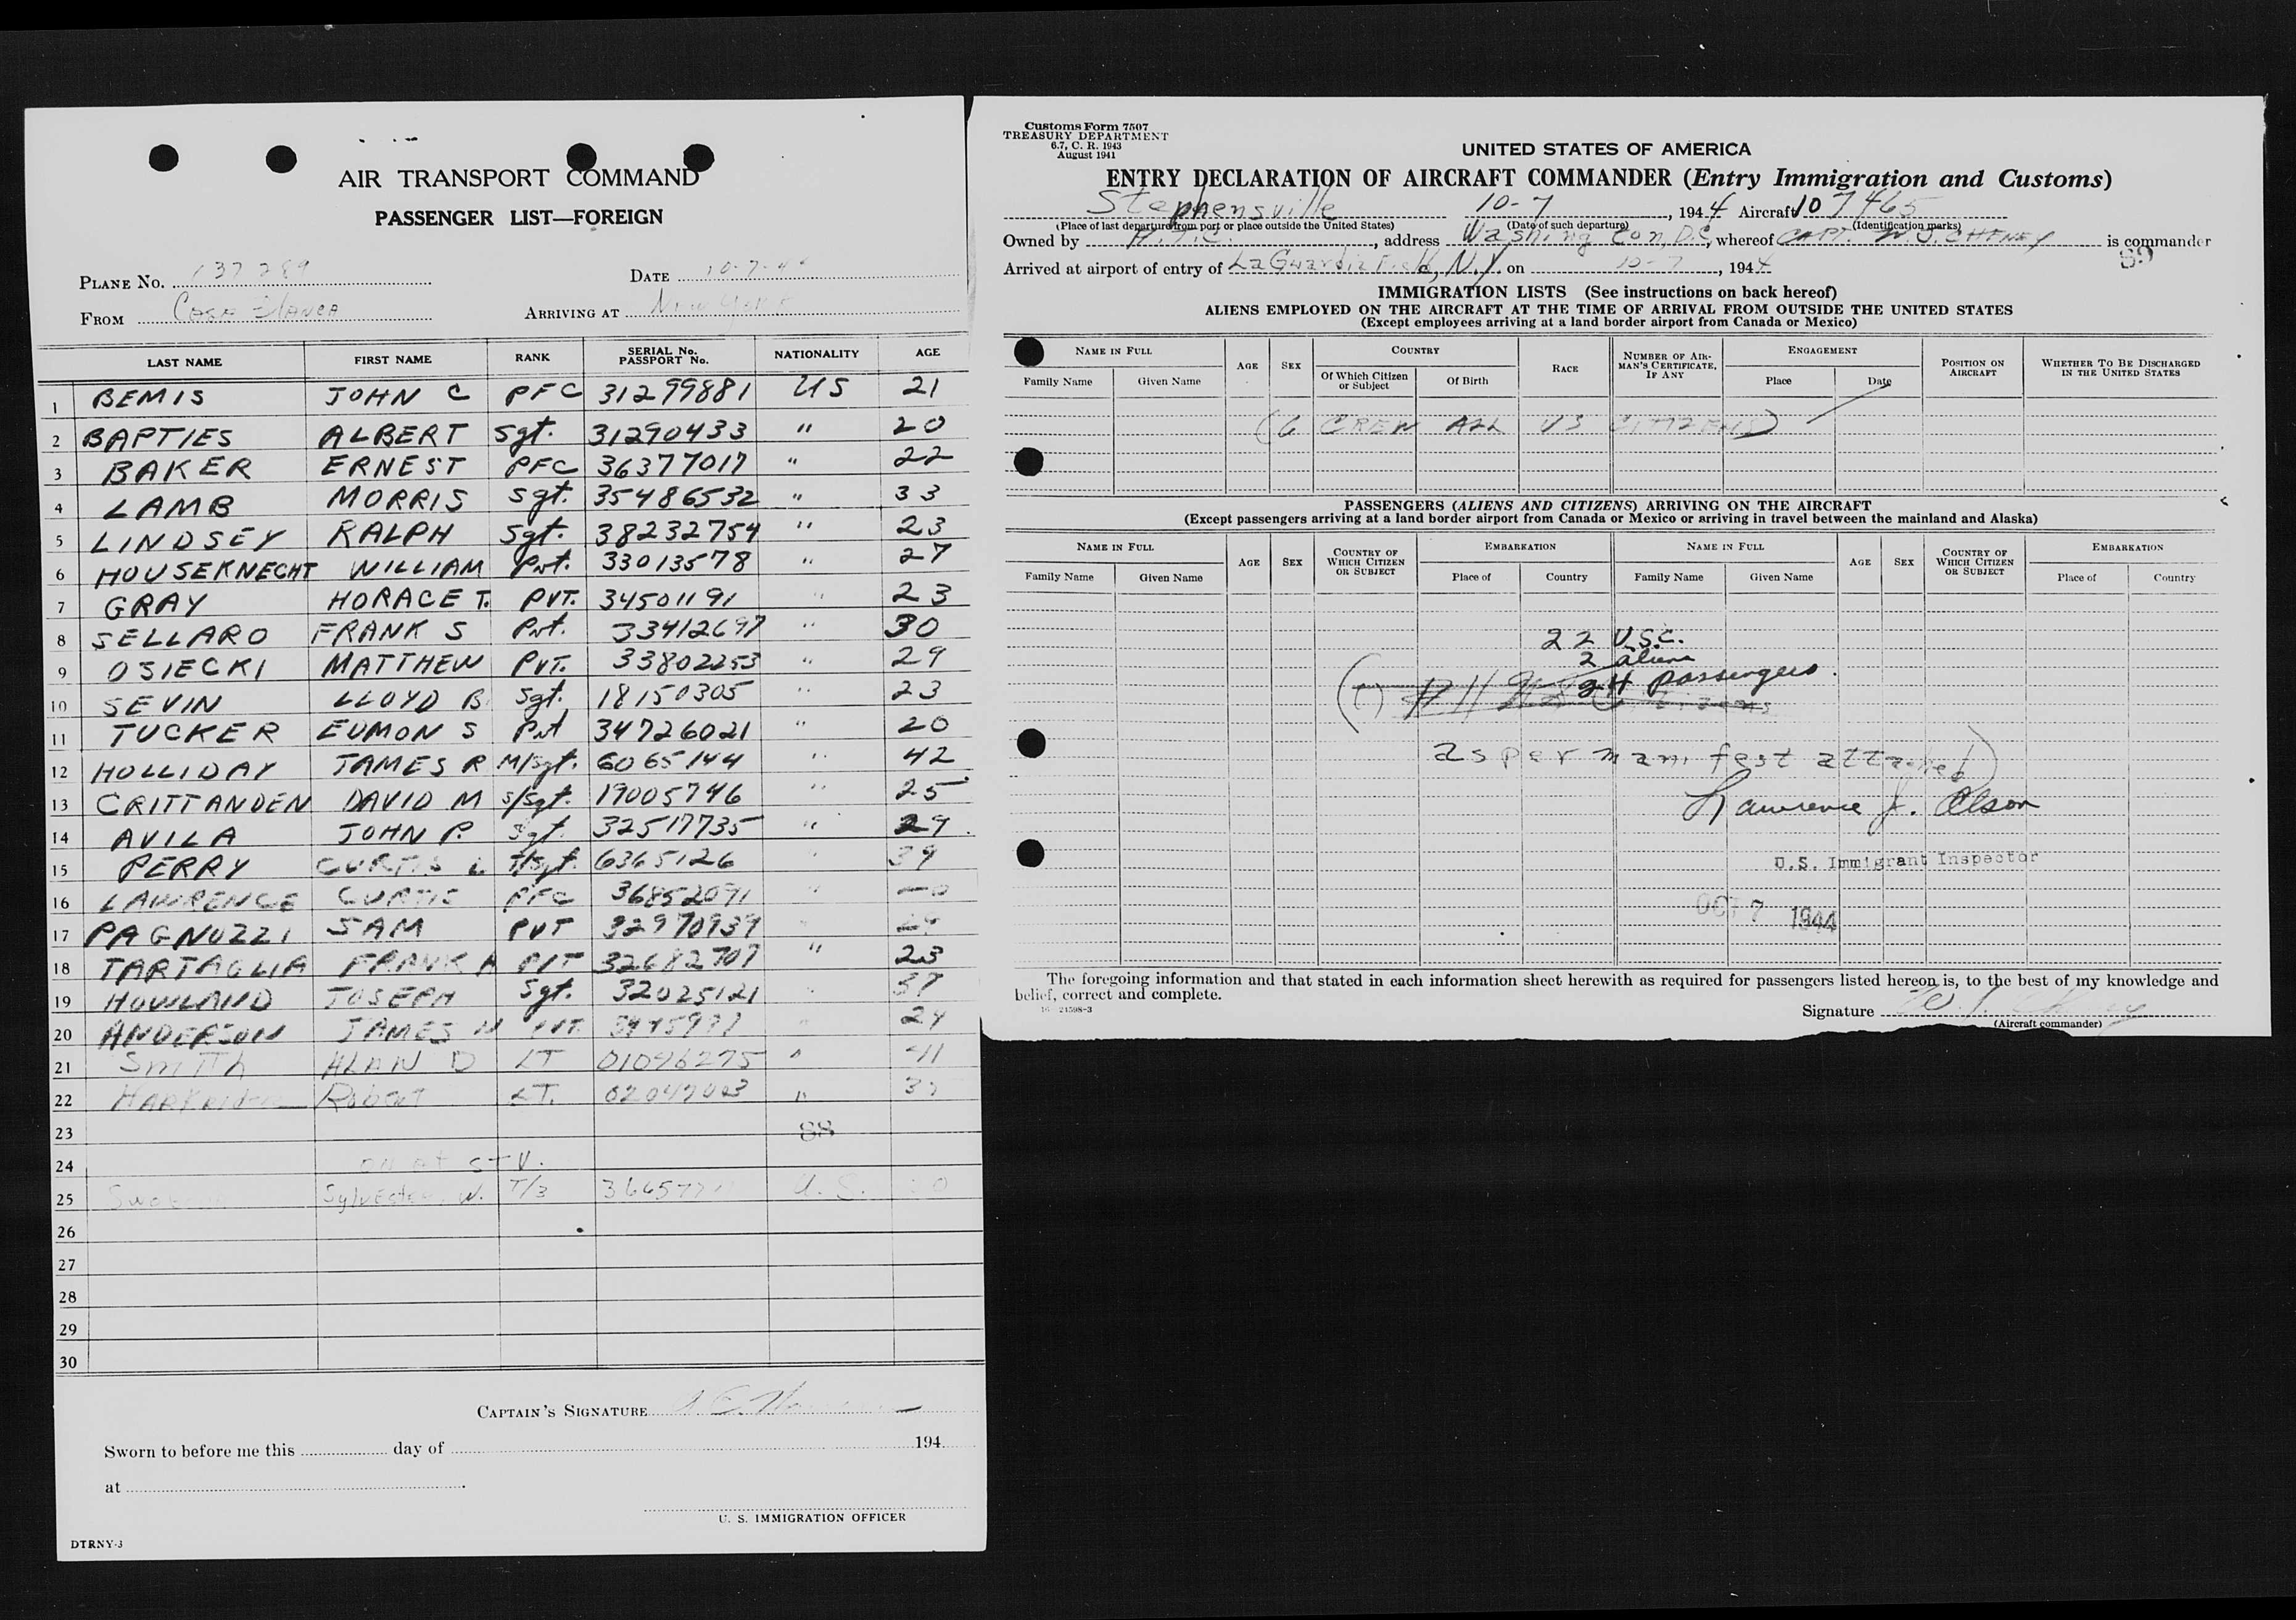 AIR TRANSPORT COMMAND
PASSENGER LIST—FOREIGN
PLANE No. 137289 DATE 10-7-44
FROM Casa Blanca ARRIVING AT New York
LAST NAME FIRST NAME RANK SERIAL No. PASSPORT No. NATIONALITY AGE
1 BEMIS JOHN C PFC 31299881 US 21
2 BAPTIES ALBERT Sgt. 31290433 " 20
3 BAKER ERNEST PFC 36377017 " 22
4 LAMB MORRIS Sgt. 35486532 " 33
5 LINDSEY RALPH Sgt. 38232754 " 23
6 HOUSEKNECHT WILLIAM Pvt. 33013578 " 27
7 GRAY HORACE T. PVT. 34501191 " 23
8 SELLARO FRANK S Pvt. 33412697 " 30
9 OSIECKI MATTHEW PVT. 33802253 " 29
10 SEVIN LLOYD B Sgt. 18150305 " 23
11 TUCKER EUMON S Pvt 34726021 " 20
12 HOLLIDAY JAMES R M/Sgt. 6065144 " 42
13 CRITTANDEN DAVID M S/Sgt. 19005746 " 25
14 AVILA JOHN P. Sgt. 32517735 " 29
15 PERRY CURTIS L T/Sgt. 6365126 " 39
16 LAWRENCE CURTIS PFC 36852091 "
17 PAGNUZZI SAM PVT 32970939 "
18 TARTAGLIA FRANK A PVT 32682707 " 23
19 HOWLAND JOSEPH Sgt. 32025121 " 37
20 ANDERSON JAMES N PVT. " 24
21 Smith ALAN D LT 01096275 "
22 Robert LT. "
23 88
24 on at STV.
25 Sylvester W. T/3 U.S.
26
27
28
29
30
CAPTAIN'S SIGNATURE
Sworn to before me this day of 194
at
U. S. IMMIGRATION OFFICER
DTRNY-3
Customs Form 7507
TREASURY DEPARTMENT
6.7, C. R. 1943
August 1941
UNITED STATES OF AMERICA
ENTRY DECLARATION OF AIRCRAFT COMMANDER (Entry Immigration and Customs)
Stephensville 10-7, 1944 Aircraft 107465
(Place of last departure from port or place outside the United States) (Date of such departure) (Identification marks)
Owned by A.T.C., address Washington, D.C., whereof CAPT. W.J. CHENEY is commander
89
Arrived at airport of entry of LaGuardia Field, N.Y. on 10-7, 1944
IMMIGRATION LISTS (See instructions on back hereof)
ALIENS EMPLOYED ON THE AIRCRAFT AT THE TIME OF ARRIVAL FROM OUTSIDE THE UNITED STATES
(Except employees arriving at a land border airport from Canada or Mexico)
NAME IN FULL AGE SEX COUNTRY RACE NUMBER OF AIRMAN'S CERTIFICATE, IF ANY ENGAGEMENT POSITION ON AIRCRAFT WHETHER TO BE DISCHARGED IN THE UNITED STATES
Family Name Given Name Of Which Citizen or Subject Of Birth Place Date
(6 CREW ALL US CITIZENS)
PASSENGERS (ALIENS AND CITIZENS) ARRIVING ON THE AIRCRAFT
(Except passengers arriving at a land border airport from Canada or Mexico or arriving in travel between the mainland and Alaska)
NAME IN FULL AGE SEX COUNTRY OF WHICH CITIZEN OR SUBJECT EMBARKATION NAME IN FULL AGE SEX COUNTRY OF WHICH CITIZEN OR SUBJECT EMBARKATION
Family Name Given Name Place of Country Family Name Given Name Place of Country
22 U.S.C.
2 aliens
24 passengers
as per manifest attached)
Lawrence J. Olson
U.S. Immigrant Inspector
OCT 7 1944
The foregoing information and that stated in each information sheet herewith as required for passengers listed hereon is, to the best of my knowledge and
belief, correct and complete.
16—21598-3
Signature W. J. Cheney
(Aircraft commander)